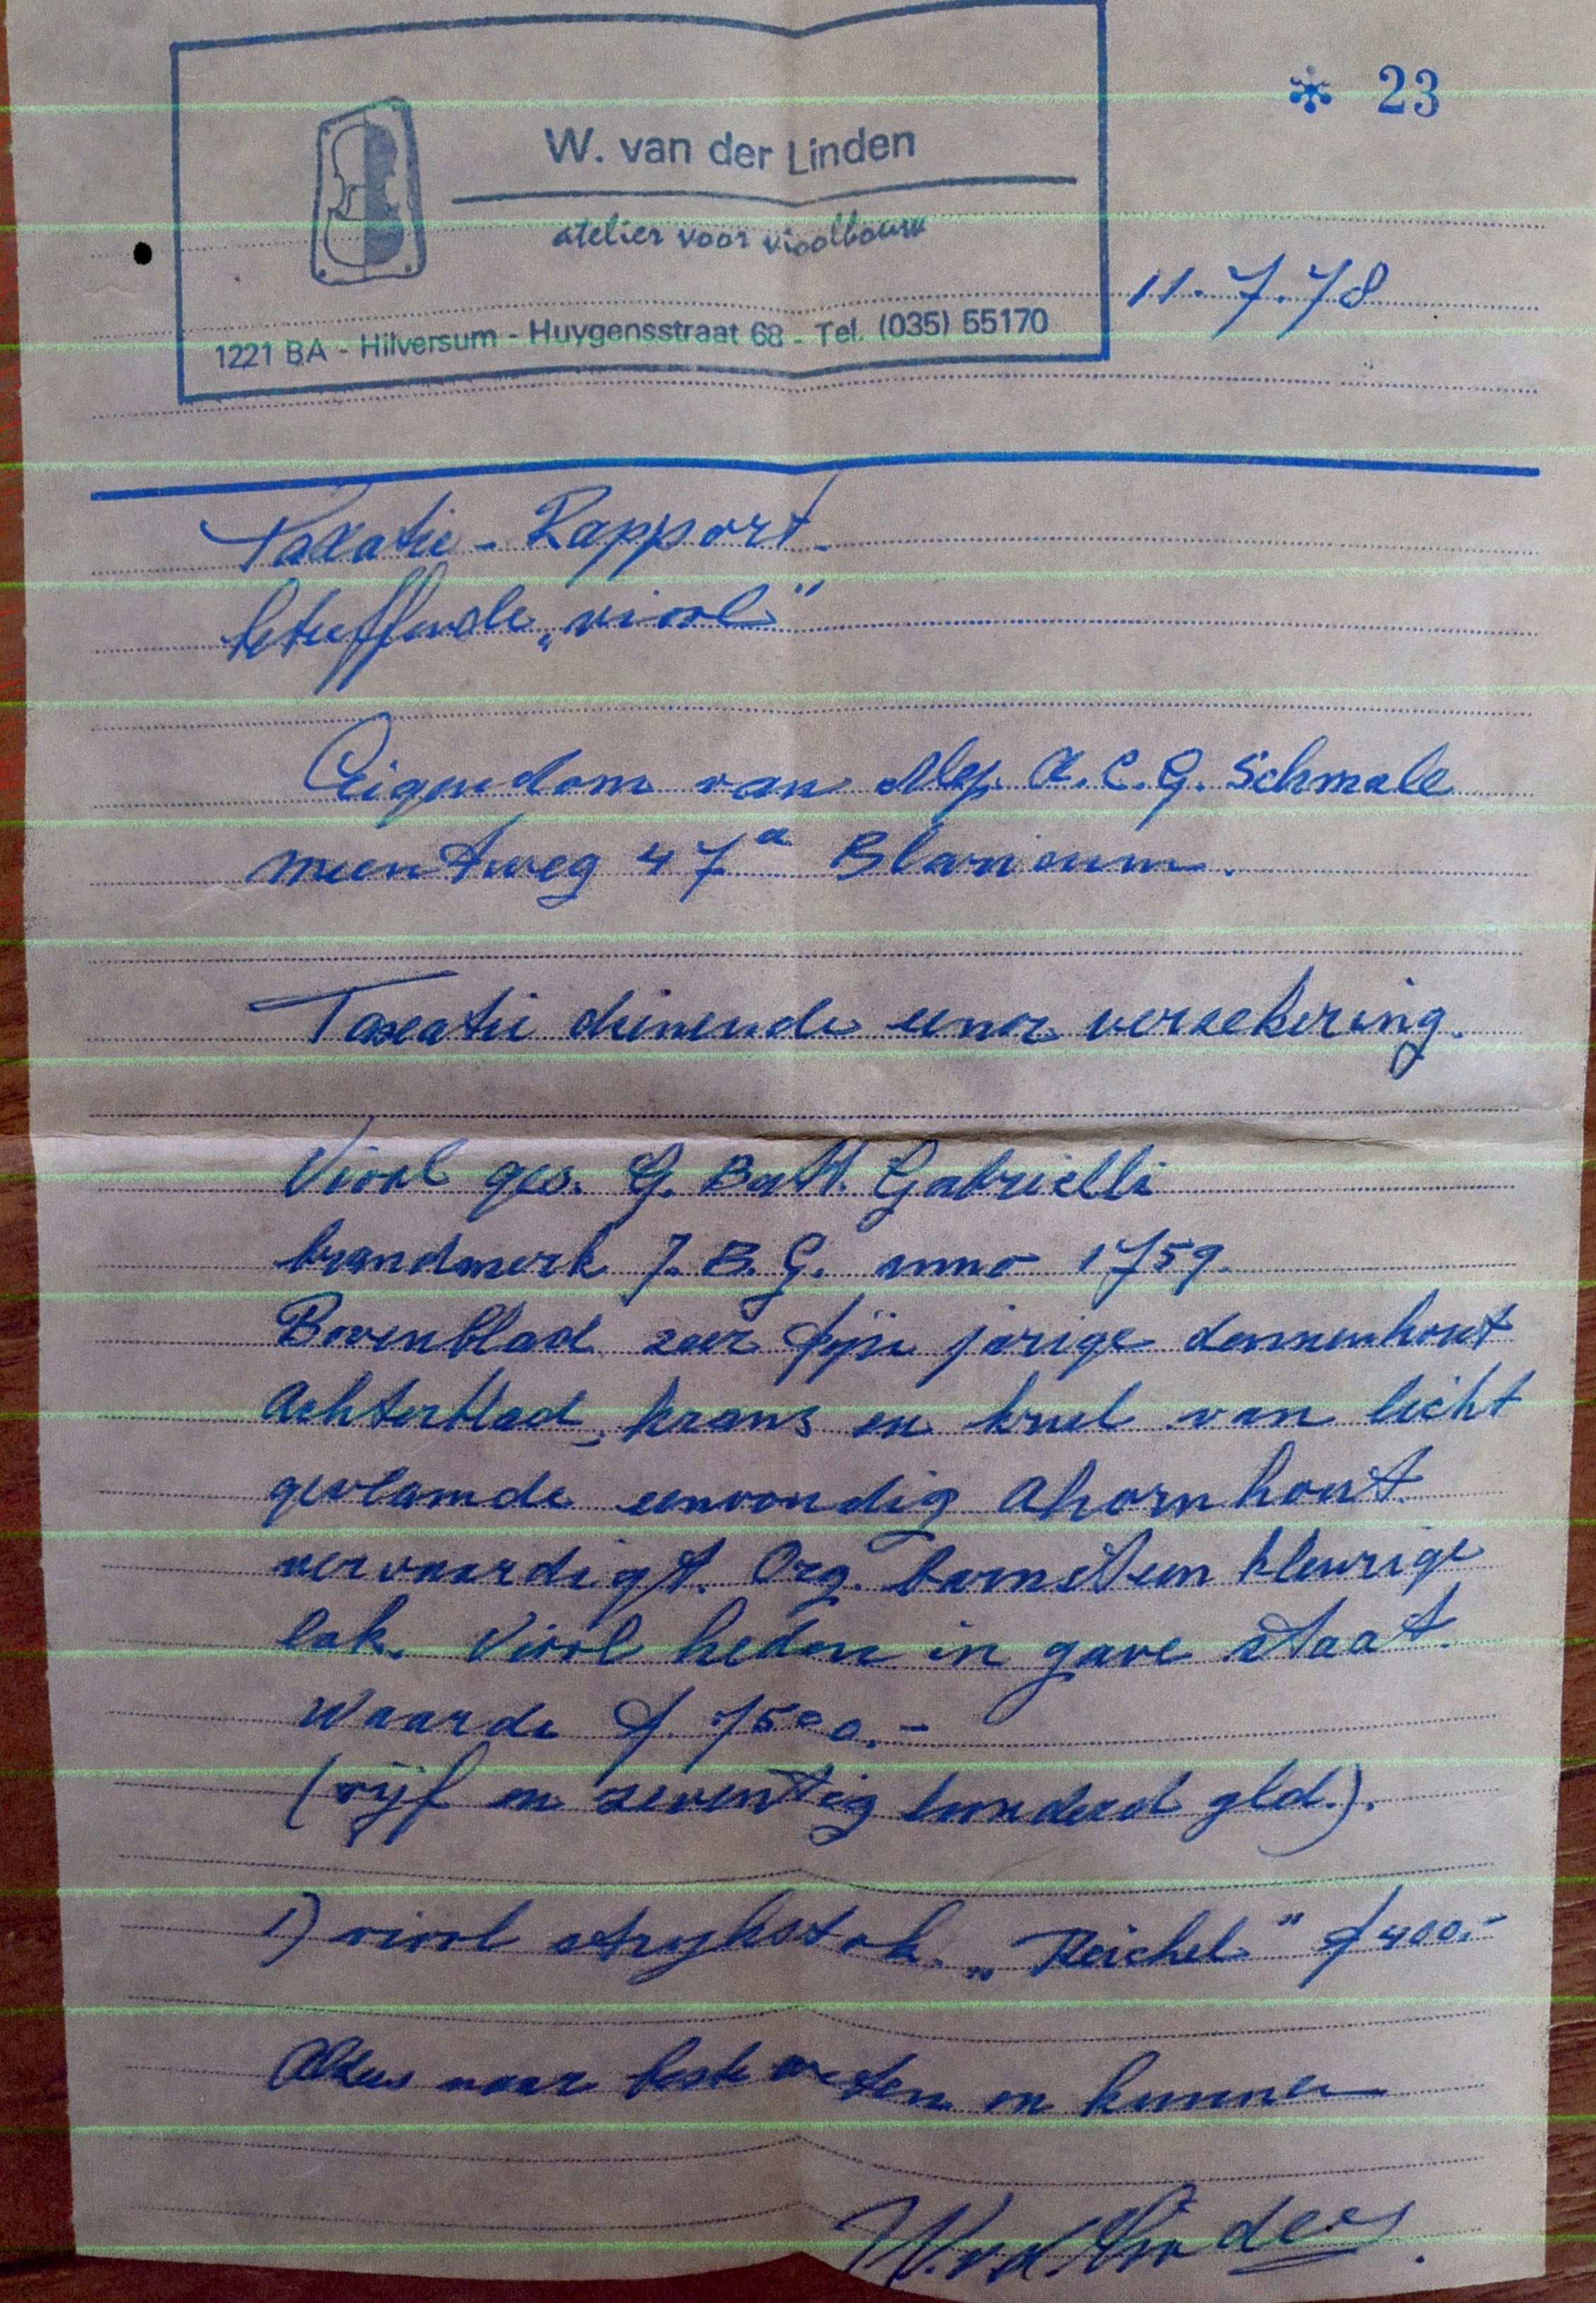 * 23
W. van der Linden
atelier voor vioolbouw
1221 BA - Hilversum - Huygensstraat 68 - Tel. (035) 55170
11.7.78
Taxatie - Rapport.
betreffende „viool"
Eigendom van Mej. A.C.G. Schmale
meentweg 47a Blaricum.
Taxatie dienende verzekering.
Viool ges. G. Batt. Gabrielli
brandmerk J.B.G. anno 1759.
Bovenblad zeer fijn jarige dennenhout
Achterblad, krans en krul van licht
gevlamde eenvoudig ahornhout
vervaardigt. Org. barnsteen kleurige
lak. Viool heden in gave staat.
Waarde f 7500.-
(vijf en zeventig honderd gld.).
1) viool strykstok „Reichel" f 400.-
Alles naar beste weten en kunnen
W. vd Linden